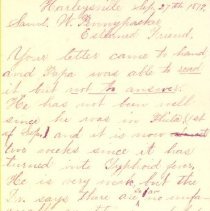 Harleysville Sep. 27th 1877.
Saml. W. Pennypacker
Esteemed Friend,
Your letter came to hand
and Papa was able to read
it but not to answer.
He has not been well
since he was in Phila (1st
of Sep.) and it is now
two weeks since it has
turned into Typhoid fever,
He is very weak, but the
Dr. says there are no unfa-